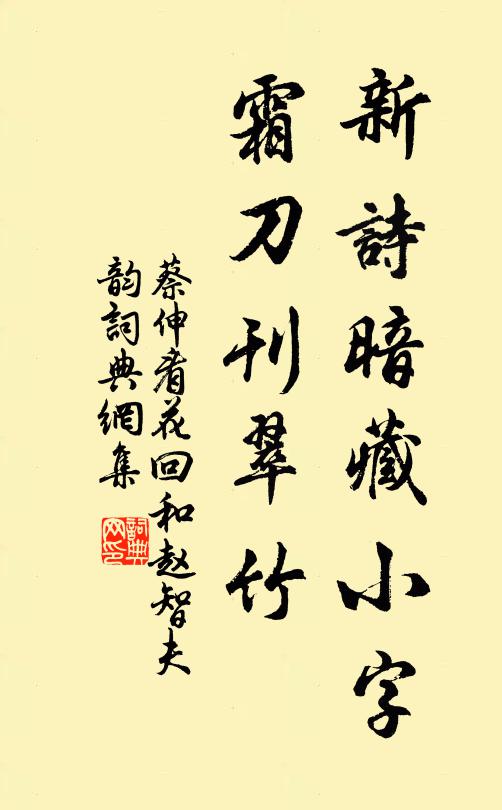 新詩暗藏小字
霜刀刊翠竹
蔡伸看花回和赵智夫
韵詞典網集
詞典
网印